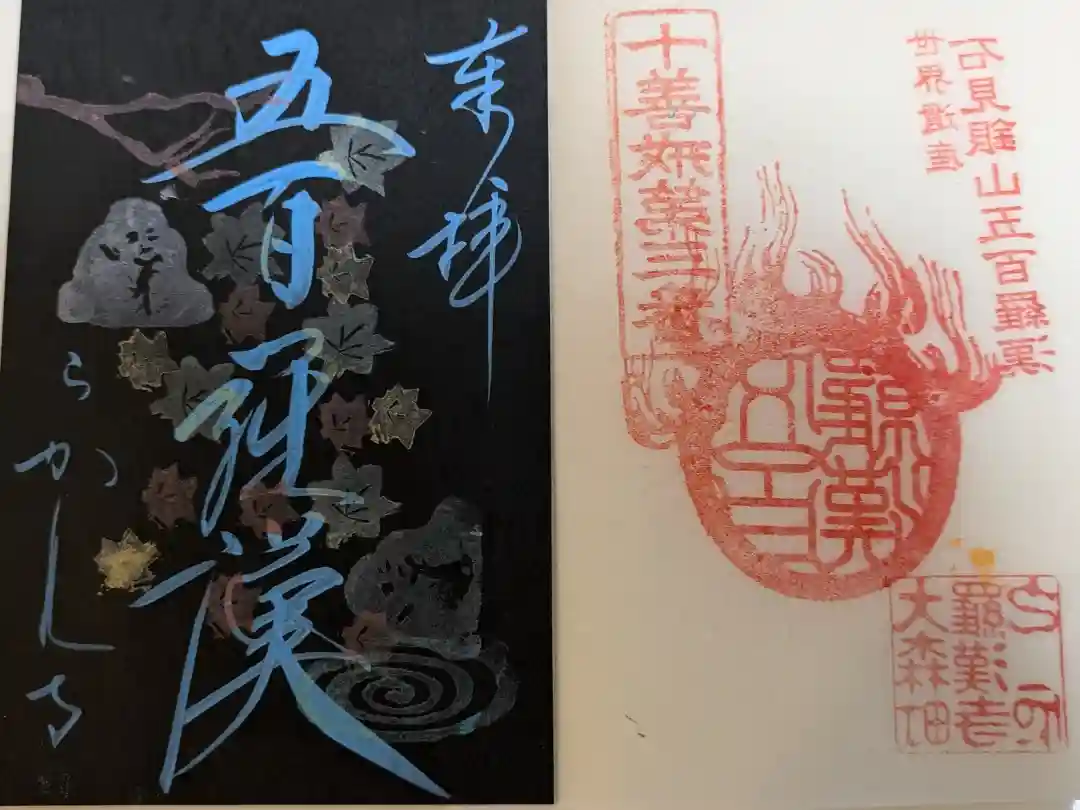 奉拝
五百羅漢
らかん寺
世界遺産
石見銀山五百羅漢
十善 第三番
五百
羅漢
羅漢寺
大森